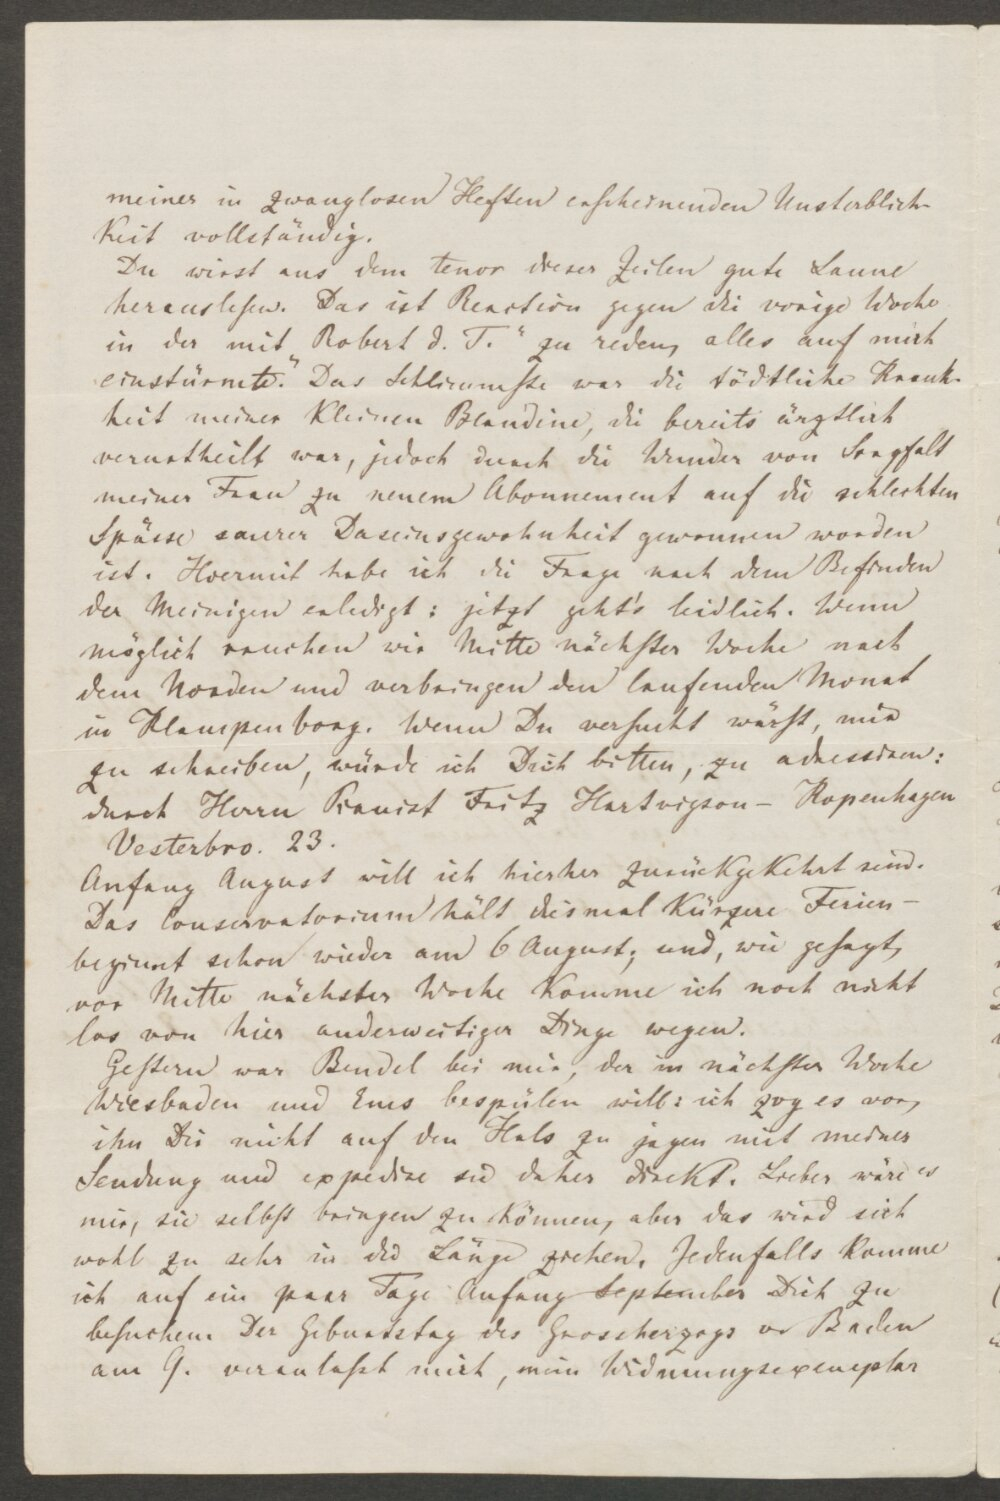 meiner in zwanglosen Heften erscheinenden Unsterblich-
keit vollständig.
Du wirst aus dem tenor dieser Zeilen gute Laune
herauslesen. Das ist Reaction gegen die vorige Woche
in der mit Robert d. T. " zu reden, alles auf mich
einstürmte." Das Schlimmste war die tödtliche Krank-
heit meiner kleinen Blandine, die bereits ärztlich
verurtheilt war, jedoch durch die Wunder von Sorgfalt
meiner Frau zu neuem Abonnement auf die schlechten
Spässe saurer Daseinsgewohnheit gewonnen worden
ist. Hiermit habe ich die Frage nach dem Befinden
der Meinigen erledigt: jetzt geht's leidlich. Wenn
möglich rauchen wir Mitte nächster Woche nach
dem Norden und verbringen den laufenden Monat
in Klampenborg. Wenn Du versucht wärst, mir
zu schreiben, würde ich Dich bitten, zu adressiren:
durch Herrn Pianist Fritz Hartvigson – Kopenhagen
Vesterbro. 23.
Anfang August will ich hierher zurückgekehrt sein.
Das Conservatorium hält diesmal kürzere Ferien –
beginnt schon wieder am 6 August; und, wie gesagt,
vor Mitte nächster Woche komme ich noch nicht
los von hier anderweitiger Dinge wegen.
Gestern war Bendel bei mir, der in nächster Woche
Wiesbaden und Ems bespülen will: ich zog es vor,
ihn Dir nicht auf den Hals zu jagen mit meiner
Sendung und expedire sie daher direkt. Lieber wäre es
mir, sie selbst bringen zu können, aber das wird sich
wohl zu sehr in die Länge ziehen. Jedenfalls komme
ich auf ein paar Tage Anfang September Dich zu
besuchen. Der Geburtstag des Grossherzogs v. Baden
am 9. veranlasst mich, mein Widmungsexemplar